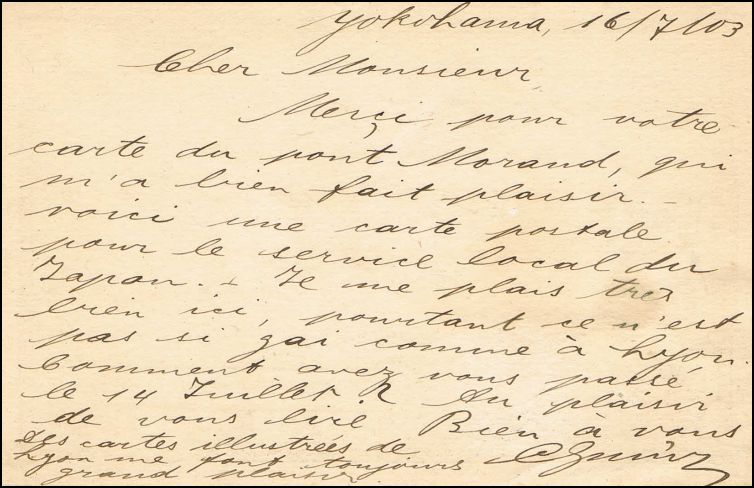 Yokohama, 16/7/03
Cher Monsieur
Merçi pour votre
carte du pont Morand, qui
m'a bien fait plaisir. -
voici une carte postale
pour le service local du
Japon. - Je me plais très
bien ici, pourtant ce n'est
pas si gai comme à Lyon.
Comment avez vous passé
le 14 Juillet? Au plaisir
de vous lire Bien à vous
Des cartes illustrées de
Lyon me font toujours
grand plaisir.